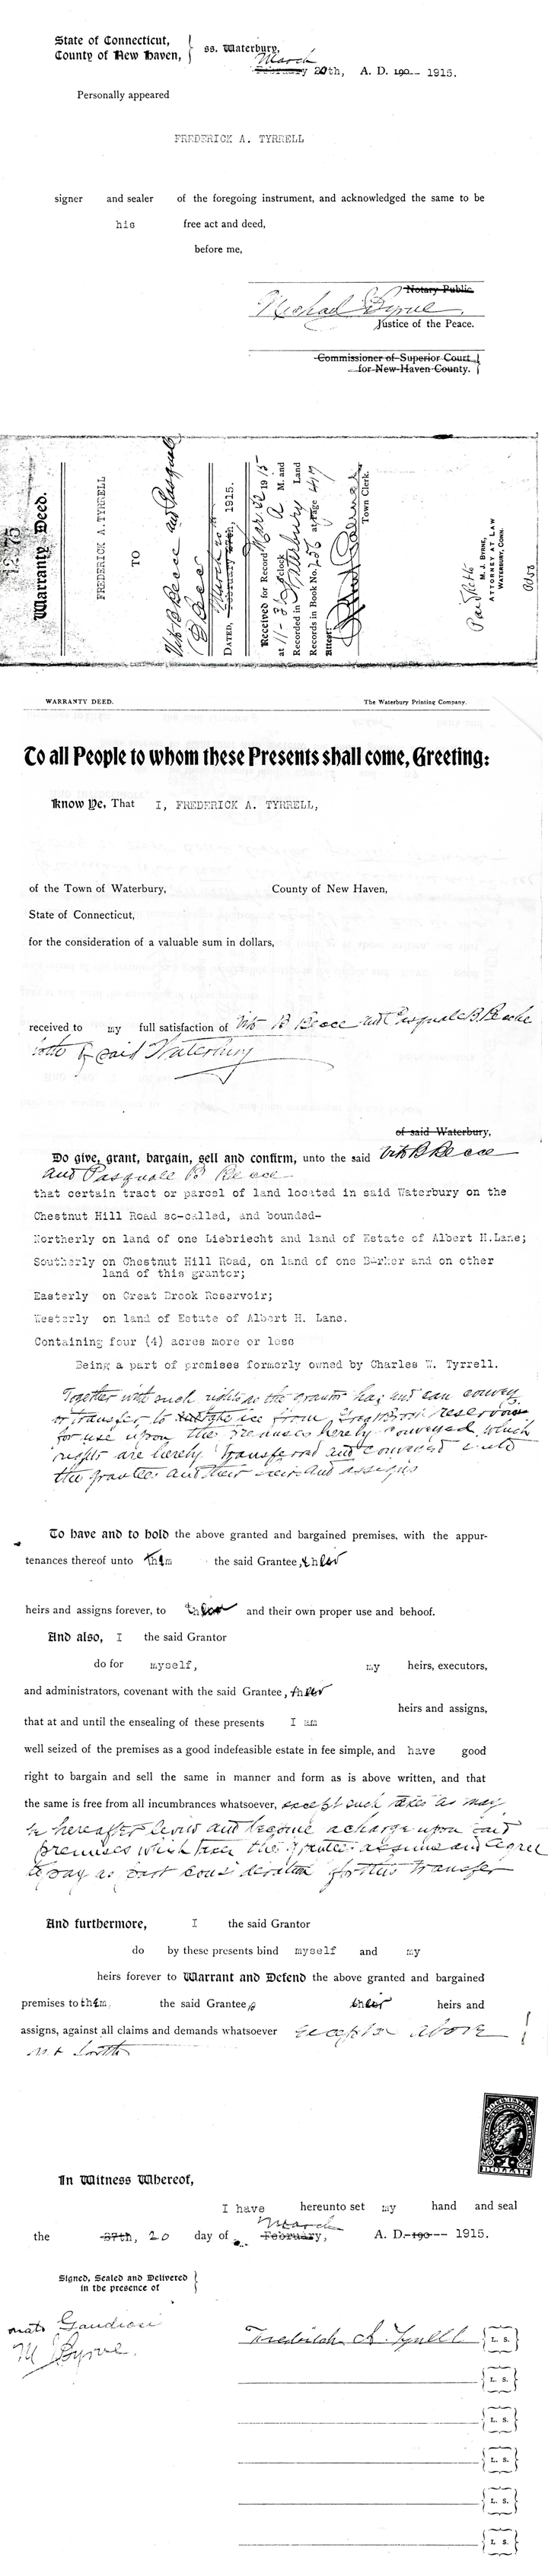 State of Connecticut,
County of New Haven,
ss. Waterbury,
March
February 20th, A. D. 190-- 1915.
Personally appeared
FREDERICK A. TYRRELL
signer and sealer of the foregoing instrument, and acknowledged the same to be
his free act and deed,
before me,
Notary Public.
Michael J Byrne
Justice of the Peace.
Commissioner of Superior Court
for New Haven County.
Warranty Deed.
FREDERICK A. TYRRELL
TO
Vito B Becce and Pasquale
B Becce
March 20th
DATED, February 27th, 1915.
Received for Record Mar 22 1915
at 11-31 o'clock A M. and
Recorded in Waterbury Land
Records in Book No. at Page 417
Attest:
Town Clerk.
Paid
M. J. BYRNE,
ATTORNEY AT LAW
WATERBURY, CONN.
WARRANTY DEED. The Waterbury Printing Company.
To all People to whom these Presents shall come, Greeting:
Know Ye, That I, FREDERICK A. TYRRELL,
of the Town of Waterbury, County of New Haven,
State of Connecticut,
for the consideration of a valuable sum in dollars,
received to my full satisfaction of Vito B Becce and Pasquale B. Becce
both of said Waterbury
of said Waterbury,
Do give, grant, bargain, sell and confirm, unto the said Vito B Becce
and Pasquale B Becce
that certain tract or parcel of land located in said Waterbury on the
Chestnut Hill Road so-called, and bounded-
Northerly on land of one Liebriecht and land of Estate of Albert H.Lane;
Southerly on Chestnut Hill Road, on land of one Barker and on other
land of this grantor;
Easterly on Great Brook Reservoir;
Westerly on land of Estate of Albert H. Lane.
Containing four (4) acres more or less
Being a part of premises formerly owned by Charles W. Tyrrell.
Together with such rights as the grantor has and can convey
or transfer, to take ice from Great Brook reservoir
for use upon the premises hereby conveyed, which
rights are hereby transferred and conveyed unto
the grantees and their heirs and assigns
To have and to hold the above granted and bargained premises, with the appur-
tenances thereof unto them the said Grantee, their
heirs and assigns forever, to their and their own proper use and behoof.
And also, I the said Grantor
do for myself, my heirs, executors,
and administrators, covenant with the said Grantee, their
heirs and assigns,
that at and until the ensealing of these presents I am
well seized of the premises as a good indefeasible estate in fee simple, and have good
right to bargain and sell the same in manner and form as is above written, and that
the same is free from all incumbrances whatsoever, except such taxes as may
be hereafter levied and become a charge upon said
premises which taxes the grantees assume and agree
to pay as part consideration for this transfer
And furthermore, I the said Grantor
do by these presents bind myself and my
heirs forever to Warrant and Defend the above granted and bargained
premises to them, the said Grantees their heirs and
assigns, against all claims and demands whatsoever except as above
set forth
DOCUMENTARY
DOLLAR
In Witness Whereof,
I have hereunto set my hand and seal
March
the 27th, 20 day of February, A. D. 190--- 1915.
Signed, Sealed and Delivered
in the presence of
Gaudiosi
M J Byrne.
Frederick A. Tyrrell L. S.
L. S.
L. S.
L. S.
L. S.
L. S.